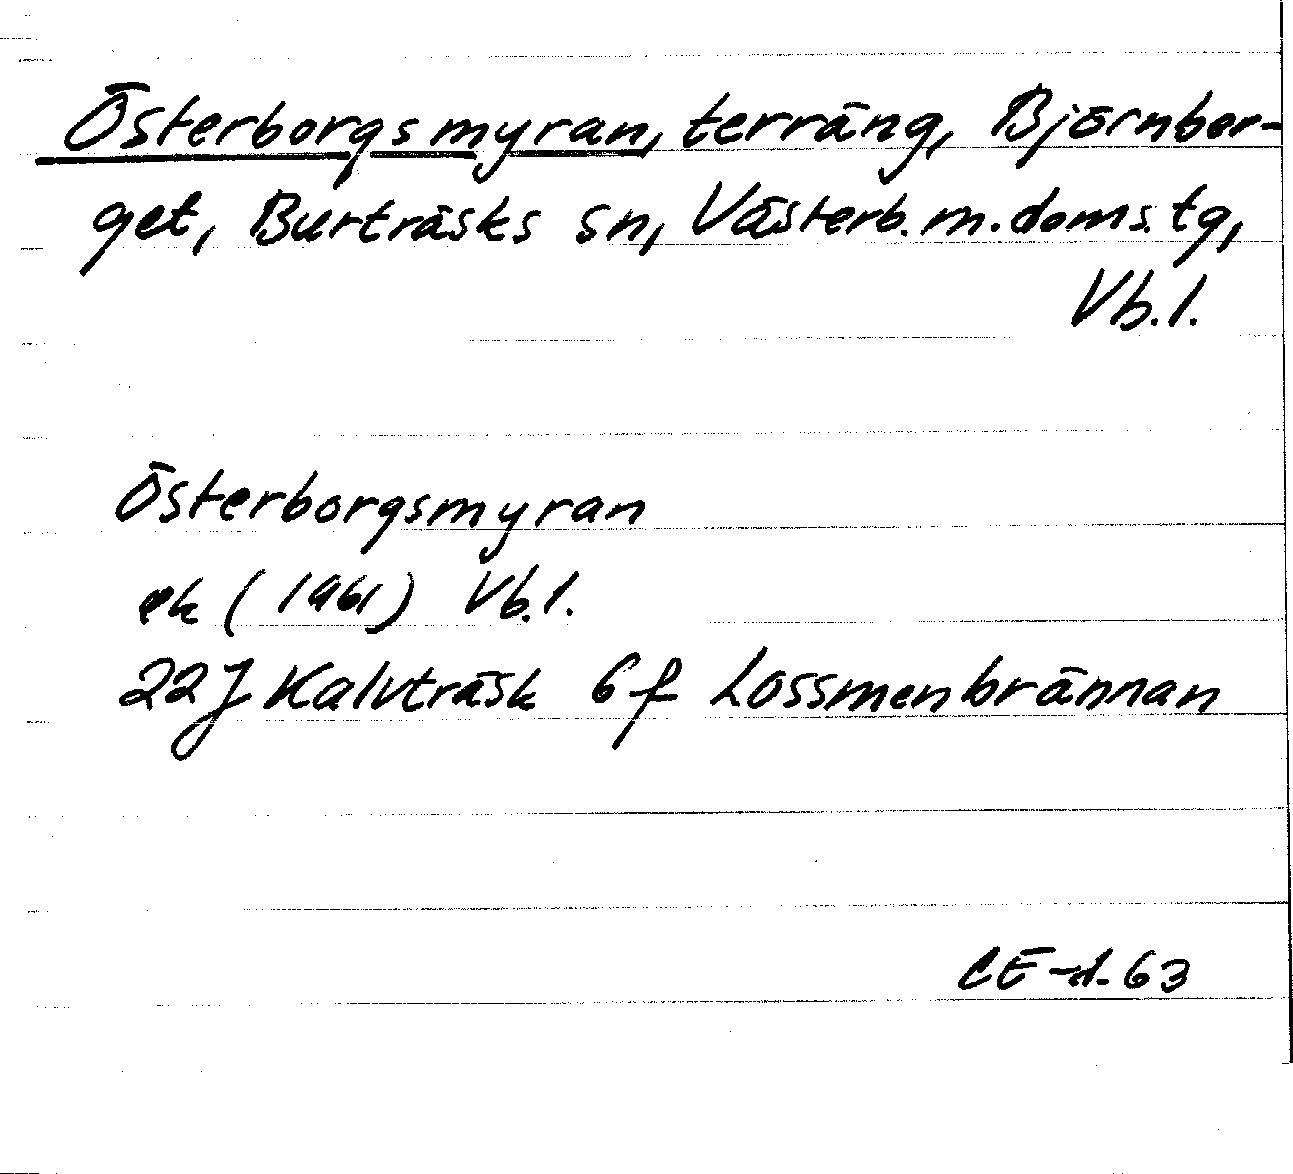 Österborgsmyran, terräng, Björnber-
get, Burträsks sn, Västerb. m. doms. tg,
Vb. l.
Österborgsmyran
ek (1961) Vb. l.
22J Kalvträsk 6f Lossmenbrännan
CE-d. 63